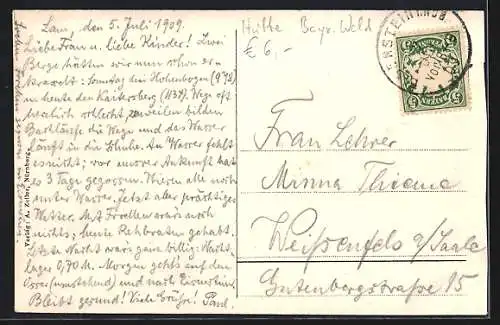 Lam, den 5. Juli 1909.
Liebe Frau u. liebe Kinder! Zwei
Berge hätten wir nun schon er-
kraxelt: Sonntag den Hohenbogen (972)
u. heute den Kaitersberg (1134). Wege oft
herzlich schlecht, zuweilen bilden
Bachläufe die Wege und das Wasser
läuft in die Schuhe. An Wasser fehlt
es nicht; vor unserer Ankunft hat
es 3 Tage gegossen. Thiem alle noch
unter Wasser. Jetzt aber prächtiges
Wetter. Mit Forellen war's noch
nichts; heute Rehbraten gehabt.
Letzte Nacht war's ganz billig: Nacht-
lager 0,70 M. Morgen geht's auf den
Osser (umstehend) und nach Eisenstein.
Bleibt gesund! Viele Grüße! Paul.
Verlag: A. Zerle, Nürnberg.
Hütte Bayr. Wald
€ 6,-
BAYERN
5 5
Frau Lehrer
Minna Thieme
Weißenfels a/Saale
Gutenbergstraße 15